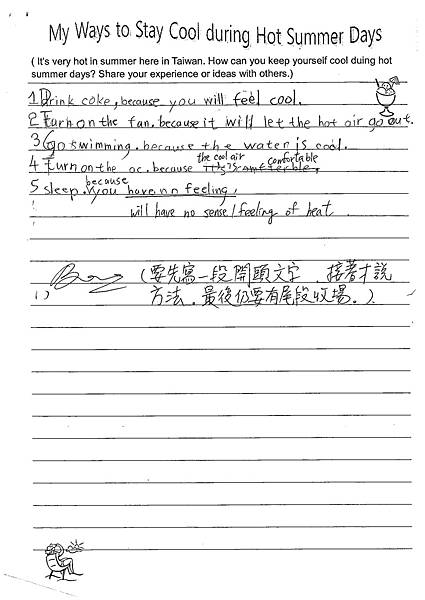 My Ways to Stay Cool during Hot Summer Days
( It's very hot in summer here in Taiwan. How can you keep yourself cool duing hot
summer days? Share your experience or ideas with others.)
1 Drink coke, because you will feel cool.
2 Turn on the fan. because it will let the hot air go out.
3 Go swimming. because the water is cool.
the cool air comfortable
4 Turn on the ac. because is
because
5 sleep. you have no feeling,
will have no sense/feeling of heat.
(要先寫一段開頭文字,接著才說
方法,最後仍要有尾段收場。)